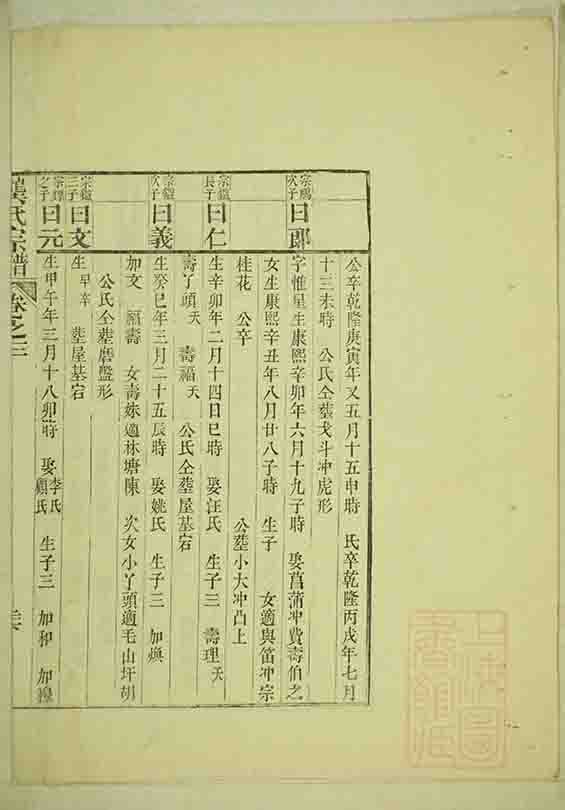 公卒乾隆庚寅年又五月十五申時　氏卒乾隆丙戌年七月
十三未時　公氏仝塟戈斗冲虎形
宗
次子
曰郎
字惟星生康熙辛卯年六月十九子時　娶菖蒲冲費壽伯之
女生康熙辛丑年八月廿八子時　生子　女適與笛冲宗
桂花　公卒　公塟小大冲凸上
宗
長子
曰仁
生辛卯年二月十四日巳時　娶汪氏　生子三　壽理夭
壽丫頭夭　壽福夭　公氏仝塟屋基宕
宗
次子
曰義
生癸巳年三月二十五辰時　娶姚氏　生子三　加煥
加文　福壽　女壽妹適林塘陳　次女小丫頭適毛山圩胡
公氏仝塟磨盤形
宗
三子
曰文
生　早卒　塟屋基宕
宗
之子
曰元
生甲午年三月十八卯時　娶李氏顧氏　生子三　加和　加
氏宗譜　卷之三
上海圖書館藏